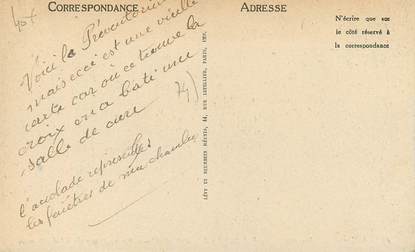 404
CORRESPONDANCE
Voici le Préventorium
mais ceci est une vieille
carte car où ce trouve la
croix en a bâti une
salle de cure
l'anclade représente
les fenêtres de ma chambre
ADRESSE
N'écrire que sur
le côté réservé à
la correspondance
LÉVY ET NEURDEIN RÉUNIS, 44, RUE LETELLIER, PARIS, IMP.